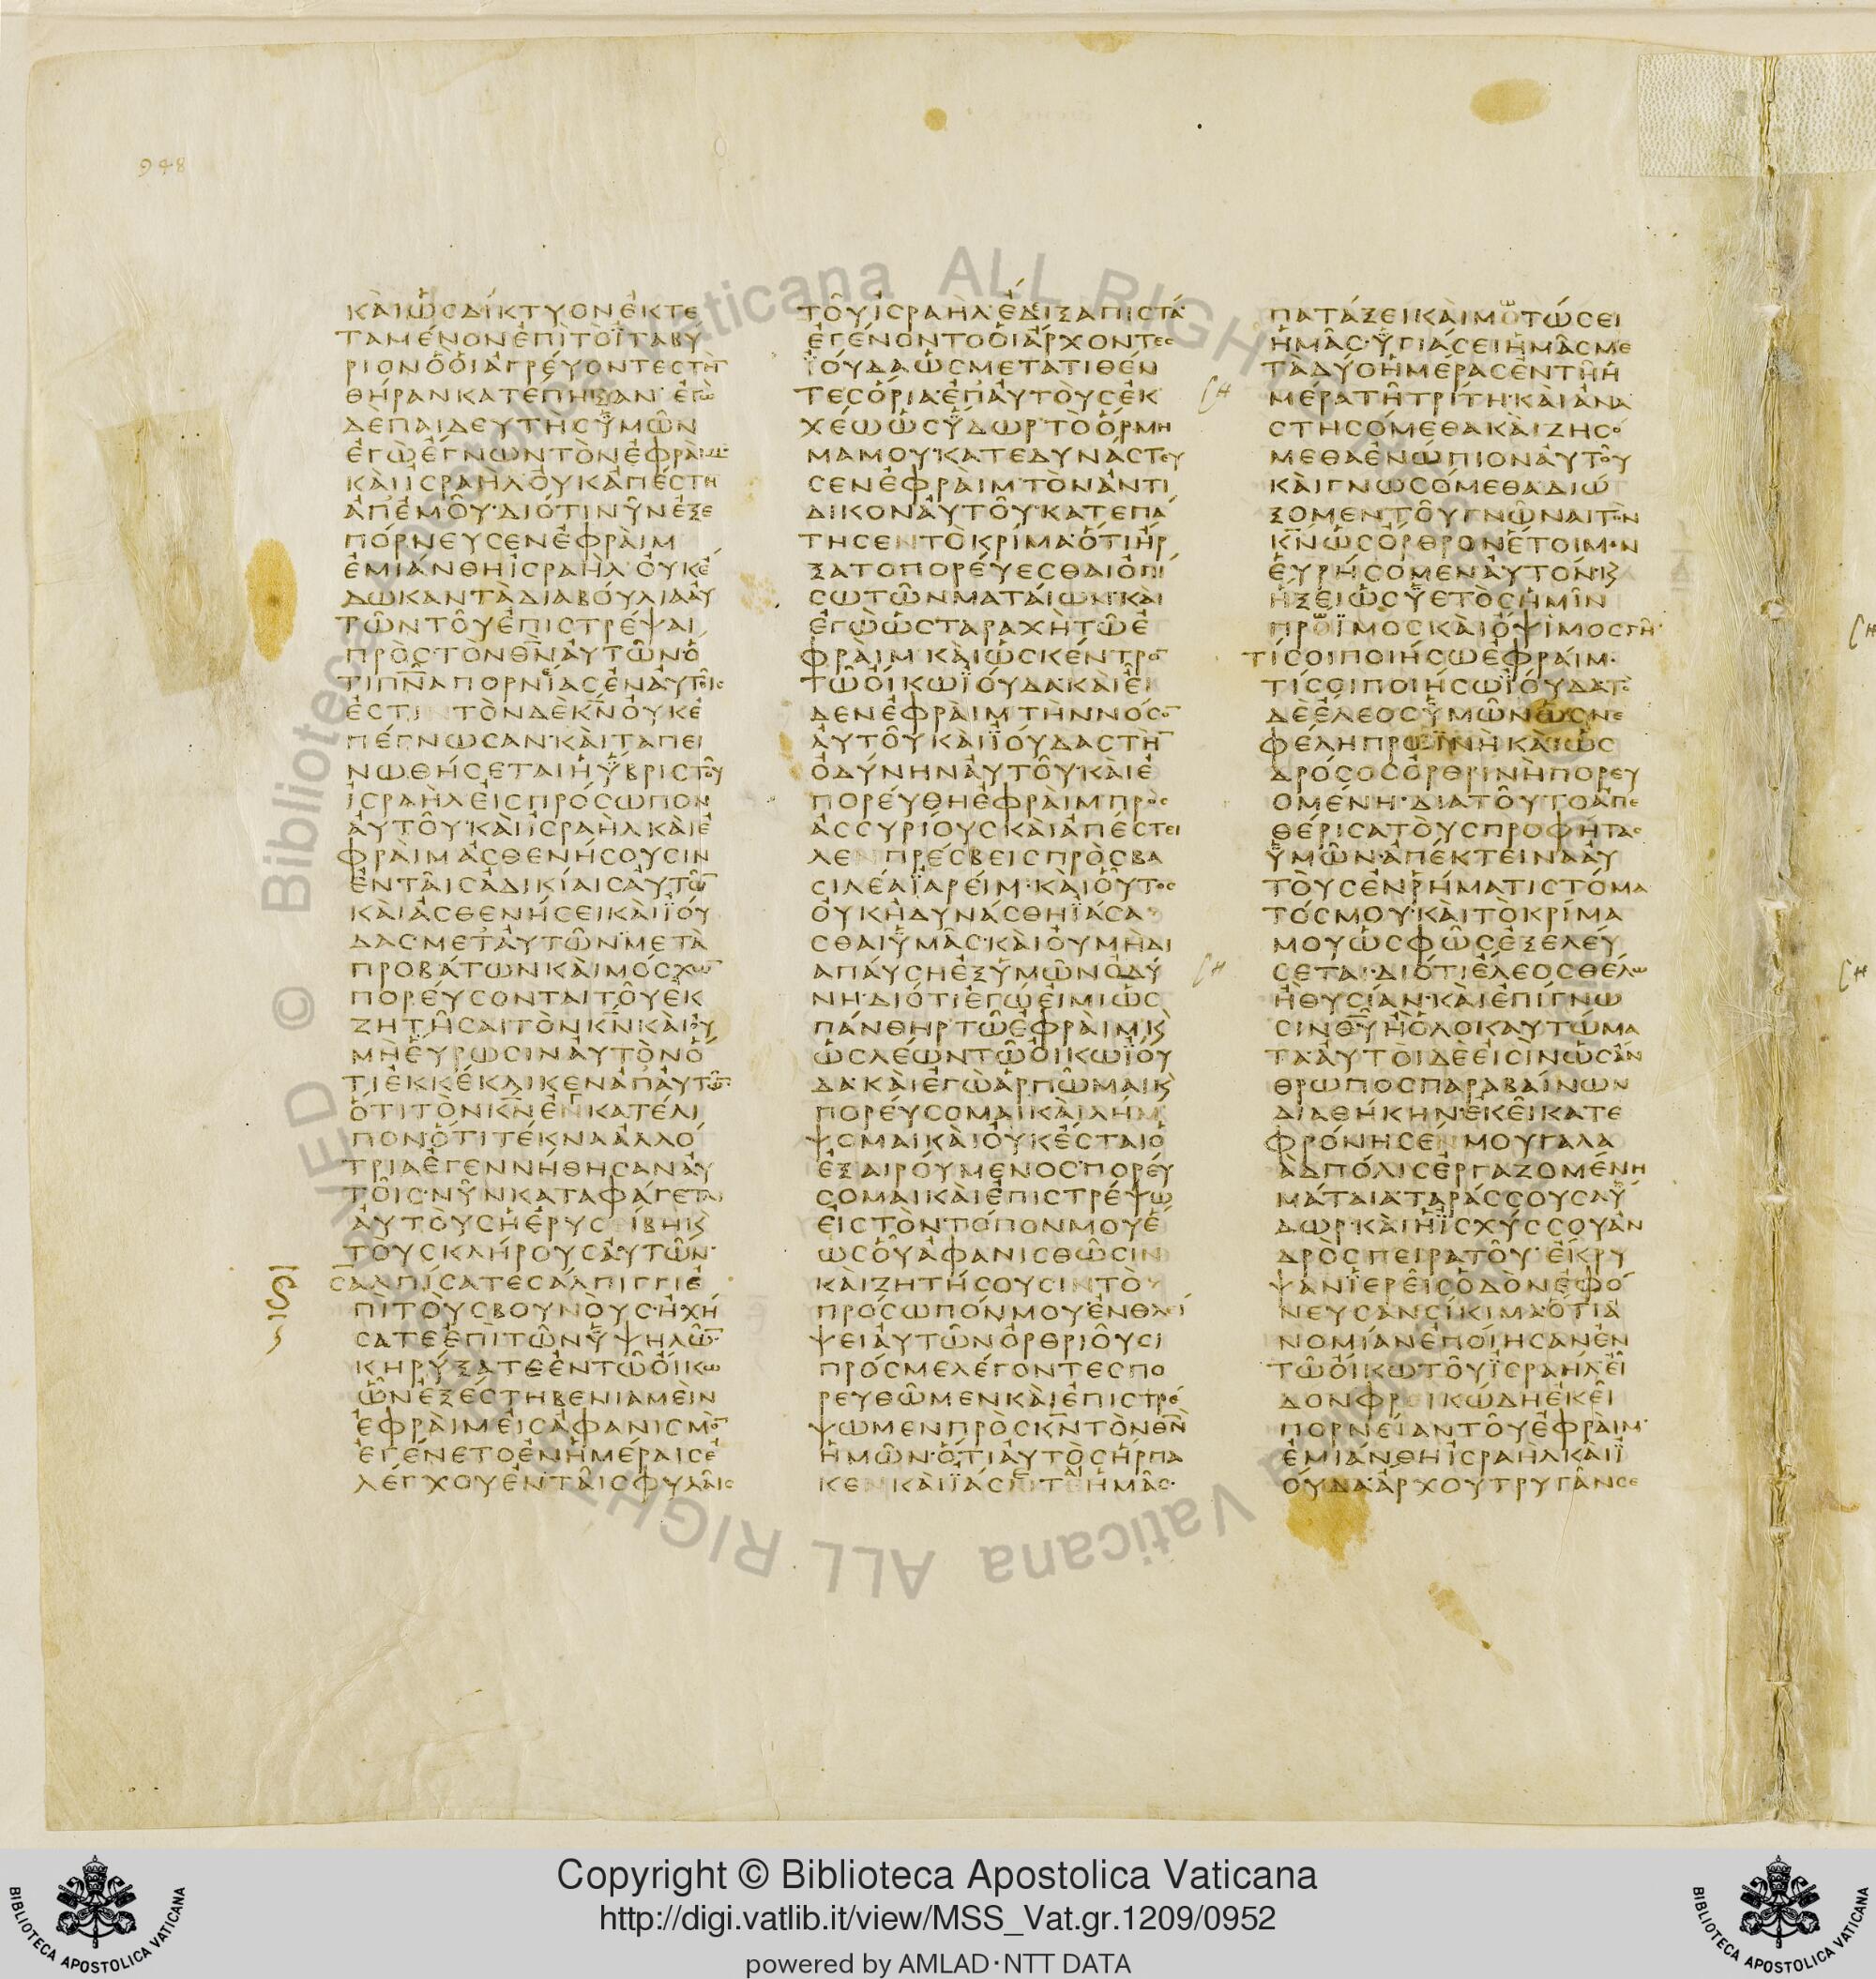 948
ΚΑΙΩΣΔΙΚΤΥΟΝΕΚΤΕ
ΤΑΜΕΝΟΝΕΠΙΤΟΙΤΑΒΥ
ΡΙΟΝΟΟΙΑΓΡΕΥΟΝΤΕΣΤΗ̅
ΘΗΡΑΝΚΑΤΕΠΗΞΑΝ·ΕΓΩ
ΔΕΠΑΙΔΕΥΤΗΣΥΜΩΝ
ΕΓΩΕΓΝΩΝΤΟΝΕΦΡΑΙΜ·
ΚΑΙΙΣΡΑΗΛΟΥΚΑΠΕΣΤΗ
ΑΠΕΜΟΥ·ΔΙΟΤΙΝΥΝΕΞΕ
ΠΟΡΝΕΥΣΕΝΕΦΡΑΙΜ
ΕΜΙΑΝΘΗΙΣΡΑΗΛ·ΟΥΚΕ
ΔΩΚΑΝΤΑΔΙΑΒΟΥΛΙΑΑΥ
ΤΩΝΤΟΥΕΠΙΣΤΡΕΨΑΙ
ΠΡΟΣΤΟΝΘ̅Ν̅ΑΥΤΩΝΟ
ΤΙΠ̅Ν̅ΑΠΟΡΝΙΑΣΕΝΑΥΤΟΙΣ
ΕΣΤΙΝΤΟΝΔΕΚ̅Ν̅ΟΥΚΕ
ΠΕΓΝΩΣΑΝ·ΚΑΙΤΑΠΕΙ
ΝΩΘΗΣΕΤΑΙΗΥΒΡΙΣΤΟΥ
ΙΣΡΑΗΛΕΙΣΠΡΟΣΩΠΟΝ
ΑΥΤΟΥ·ΚΑΙΙΣΡΑΗΛΚΑΙΕ
ΦΡΑΙΜΑΣΘΕΝΗΣΟΥΣΙΝ
ΕΝΤΑΙΣΑΔΙΚΙΑΙΣΑΥΤΩ̅
ΚΑΙΑΣΘΕΝΗΣΕΙΚΑΙΙΟΥ
ΔΑΣ·ΜΕΤΑΥΤΩΝ·ΜΕΤΑ
ΠΡΟΒΑΤΩΝΚΑΙΜΟΣΧΩ̅
ΠΟΡΕΥΣΟΝΤΑΙΤΟΥΕΚ
ΖΗΤΗΣΑΙΤΟΝΚ̅Ν̅ΚΑΙΟΥ
ΜΗΕΥΡΩΣΙΝΑΥΤΟΝΟ
ΤΙΕΚΚΕΚΛΙΚΕΝΑΠΑΥΤΩ̅·
ΟΤΙΤΟΝΚ̅Ν̅ΕΝΚΑΤΕΛΙ
ΠΟΝΟΤΙΤΕΚΝΑΑΛΛΟ
ΤΡΙΑΕΓΕΝΝΗΘΗΣΑΝΑΥ
ΤΟΙΣ·ΝΥΝΚΑΤΑΦΑΓΕΤΑΙ
ΑΥΤΟΥΣΗΕΡΥΣΙΒΗΚ̀
ΤΟΥΣΚΛΗΡΟΥΣΑΥΤΩΝ·
ΣΑΛΠΙΣΑΤΕΣΑΛΠΙΓΓΙΕ
ΠΙΤΟΥΣΒΟΥΝΟΥΣ·ΗΧΗ
ΣΑΤΕΕΠΙΤΩΝΥΨΗΛΩ̅·
ΚΗΡΥΞΑΤΕΕΝΤΩΟΙΚΩ
ΩΝΕΞΕΣΤΗΒΕΝΙΑΜΕΙΝ
ΕΦΡΑΙΜΕΙΣΑΦΑΝΙΣΜΟ̅
ΕΓΕΝΕΤΟΕΝΗΜΕΡΑΙΣΕ
ΛΕΓΧΟΥΕΝΤΑΙΣΦΥΛΑΙΣ
ΤΟΥΙΣΡΑΗΛΕΔΙΞΑΠΙΣΤΑ
ΕΓΕΝΟΝΤΟΟΙΑΡΧΟΝΤΕΣ
ΙΟΥΔΑΩΣΜΕΤΑΤΙΘΕΝ
ΤΕΣΟΡΙΑ·ΕΠΑΥΤΟΥΣΕΚ
ΧΕΩΩΣΥΔΩΡΤΟΟΡΜΗ
ΜΑΜΟΥ·ΚΑΤΕΔΥΝΑΣΤΕΥ
ΣΕΝΕΦΡΑΙΜΤΟΝΑΝΤΙ
ΔΙΚΟΝΑΥΤΟΥ·ΚΑΤΕΠΑ
ΤΗΣΕΝΤΟΚΡΙΜΑ·ΟΤΙΗΡ
ΞΑΤΟΠΟΡΕΥΕΣΘΑΙΟΠΙ
ΣΩΤΩΝΜΑΤΑΙΩΝ·ΚΑΙ
ΕΓΩΩΣΤΑΡΑΧΗΤΩΕ
ΦΡΑΙΜΚΑΙΩΣΚΕΝΤΡΟ̅
ΤΩΟΙΚΩΙΟΥΔΑ·ΚΑΙΕΙ
ΔΕΝΕΦΡΑΙΜΤΗΝΝΟΣΟ̅
ΑΥΤΟΥΚΑΙΙΟΥΔΑΣΤΗ̅
ΟΔΥΝΗΝΑΥΤΟΥ·ΚΑΙΕ
ΠΟΡΕΥΘΗΕΦΡΑΙΜΠΡΟΣ
ΑΣΣΥΡΙΟΥΣΚΑΙΑΠΕΣΤΕΙ
ΛΕΝΠΡΕΣΒΕΙΣΠΡΟΣΒΑ
ΣΙΛΕΑΙΑΡΕΙΜ·ΚΑΙΟΥΤΟΣ
ΟΥΚΗΔΥΝΑΣΘΗΙΑΣΑ
ΣΘΑΙΥΜΑΣ·ΚΑΙΟΥΜΗΔΙ
ΑΠΑΥΣΗΕΞΥΜΩΝΟΔΥ
ΝΗ·ΔΙΟΤΙΕΓΩΕΙΜΙΩΣ
ΠΑΝΘΗΡΤΩΕΦΡΑΙΜΚ̀
ΩΣΛΕΩΝΤΩΟΙΚΩΙΟΥ
ΔΑ·ΚΑΙΕΓΩΑΡΠΩΜΑΙΚ̀
ΠΟΡΕΥΣΟΜΑΙΚΑΙΛΗΜ
ΨΟΜΑΙΚΑΙΟΥΚΕΣΤΑΙΟ
ΕΞΑΙΡΟΥΜΕΝΟΣ·ΠΟΡΕΥ
ΣΟΜΑΙΚΑΙΕΠΙΣΤΡΕΨΩ
ΕΙΣΤΟΝΤΟΠΟΝΜΟΥΕ
ΩΣΟΥΑΦΑΝΙΣΘΩΣΙΝ
ΚΑΙΖΗΤΗΣΟΥΣΙΝΤΟ
ΠΡΟΣΩΠΟΝΜΟΥ·ΕΝΘΛΙ
ΨΕΙΑΥΤΩΝΟΡΘΡΙΟΥΣΙ
ΠΡΟΣΜΕΛΕΓΟΝΤΕΣΠΟ
ΡΕΥΘΩΜΕΝΚΑΙΕΠΙΣΤΡΕ
ΨΩΜΕΝΠΡΟΣΚ̅Ν̅ΤΟΝΘ̅Ν̅
ΗΜΩΝ·ΟΤΙΑΥΤΟΣΗΡΠΑ
ΚΕΝΚΑΙΙΑΣΕΤΑΙΗΜΑΣ·
ΠΑΤΑΞΕΙΚΑΙΜΟΤΩΣΕΙ
ΗΜΑΣ·ΥΓΙΑΣΕΙΗΜΑΣΜΕ
ΤΑΔΥΟΗΜΕΡΑΣΕΝΤΗΗ
ΜΕΡΑΤΗΤΡΙΤΗ·ΚΑΙΑΝΑ
ΣΤΗΣΟΜΕΘΑΚΑΙΖΗΣΟ
ΜΕΘΑΕΝΩΠΙΟΝΑΥΤΟΥ
ΚΑΙΓΝΩΣΟΜΕΘΑΔΙΩ
ΞΟΜΕΝΤΟΥΓΝΩΝΑΙΤΟΝ
Κ̅Ν̅ΩΣΟΡΘΡΟΝΕΤΟΙΜΟΝ
ΕΥΡΗΣΟΜΕΝΑΥΤΟΝΚ̀
ΗΞΕΙΩΣΥΕΤΟΣΗΜΙΝ
ΠΡΟΙΜΟΣΚΑΙΟΨΙΜΟΣΓΗ·
ΤΙΣΟΙΠΟΙΗΣΩΕΦΡΑΙΜ·
ΤΙΣΟΙΠΟΙΗΣΩΙΟΥΔΑΤΟ
ΔΕΕΛΕΟΣΥΜΩΝΩΣΝΕ
ΦΕΛΗΠΡΩΙΝΗΚΑΙΩΣ
ΔΡΟΣΟΣΟΡΘΡΙΝΗΠΟΡΕΥ
ΟΜΕΝΗ·ΔΙΑΤΟΥΤΟΑΠΕ
ΘΕΡΙΣΑΤΟΥΣΠΡΟΦΗΤΑΣ
ΥΜΩΝ·ΑΠΕΚΤΕΙΝΑΑΥ
ΤΟΥΣΕΝΡΗΜΑΤΙΣΤΟΜΑ
ΤΟΣΜΟΥ·ΚΑΙΤΟΚΡΙΜΑ
ΜΟΥΩΣΦΩΣΕΞΕΛΕΥ
ΣΕΤΑΙ·ΔΙΟΤΙΕΛΕΟΣΘΕΛΩ
ΗΘΥΣΙΑΝ·ΚΑΙΕΠΙΓΝΩ
ΣΙΝΘ̅Υ̅ΗΟΛΟΚΑΥΤΩΜΑ
ΤΑ·ΑΥΤΟΙΔΕΕΙΣΙΝΩΣΑΝ
ΘΡΩΠΟΣΠΑΡΑΒΑΙΝΩΝ
ΔΙΑΘΗΚΗΝ·ΕΚΕΙΚΑΤΕ
ΦΡΟΝΗΣΕΝΜΟΥΓΑΛΑ
ΑΔΠΟΛΙΣΕΡΓΑΖΟΜΕΝΗ
ΜΑΤΑΙΑΤΑΡΑΣΣΟΥΣΑΥ
ΔΩΡ·ΚΑΙΗΙΣΧΥΣΣΟΥΑΝ
ΔΡΟΣΠΕΙΡΑΤΟΥ·ΕΚΡΥ
ΨΑΝΙΕΡΕΙΣΟΔΟΝΕΦΟ
ΝΕΥΣΑΝΣΙΚΙΜΑ·ΟΤΙΑ
ΝΟΜΙΑΝΕΠΟΙΗΣΑΝΕΝ
ΤΩΟΙΚΩΤΟΥΙΣΡΑΗΛΕΙ
ΔΟΝΦΡΙΚΩΔΗΕΚΕΙ
ΠΟΡΝΕΙΑΝΤΟΥΕΦΡΑΙΜ·
ΕΜΙΑΝΘΗΙΣΡΑΗΛΚΑΙΙ
ΟΥΔΑ·ΑΡΧΟΥΤΡΥΓΑΝΣΕ
© Biblioteca Apostolica Vaticana ALL RIGHTS RESERVED
Copyright © Biblioteca Apostolica Vaticana
http://digi.vatlib.it/view/MSS_Vat.gr.1209/0952
powered by AMLAD·NTT DATA
BIBLIOTECA APOSTOLICA VATICANA
BIBLIOTECA APOSTOLICA VATICANA